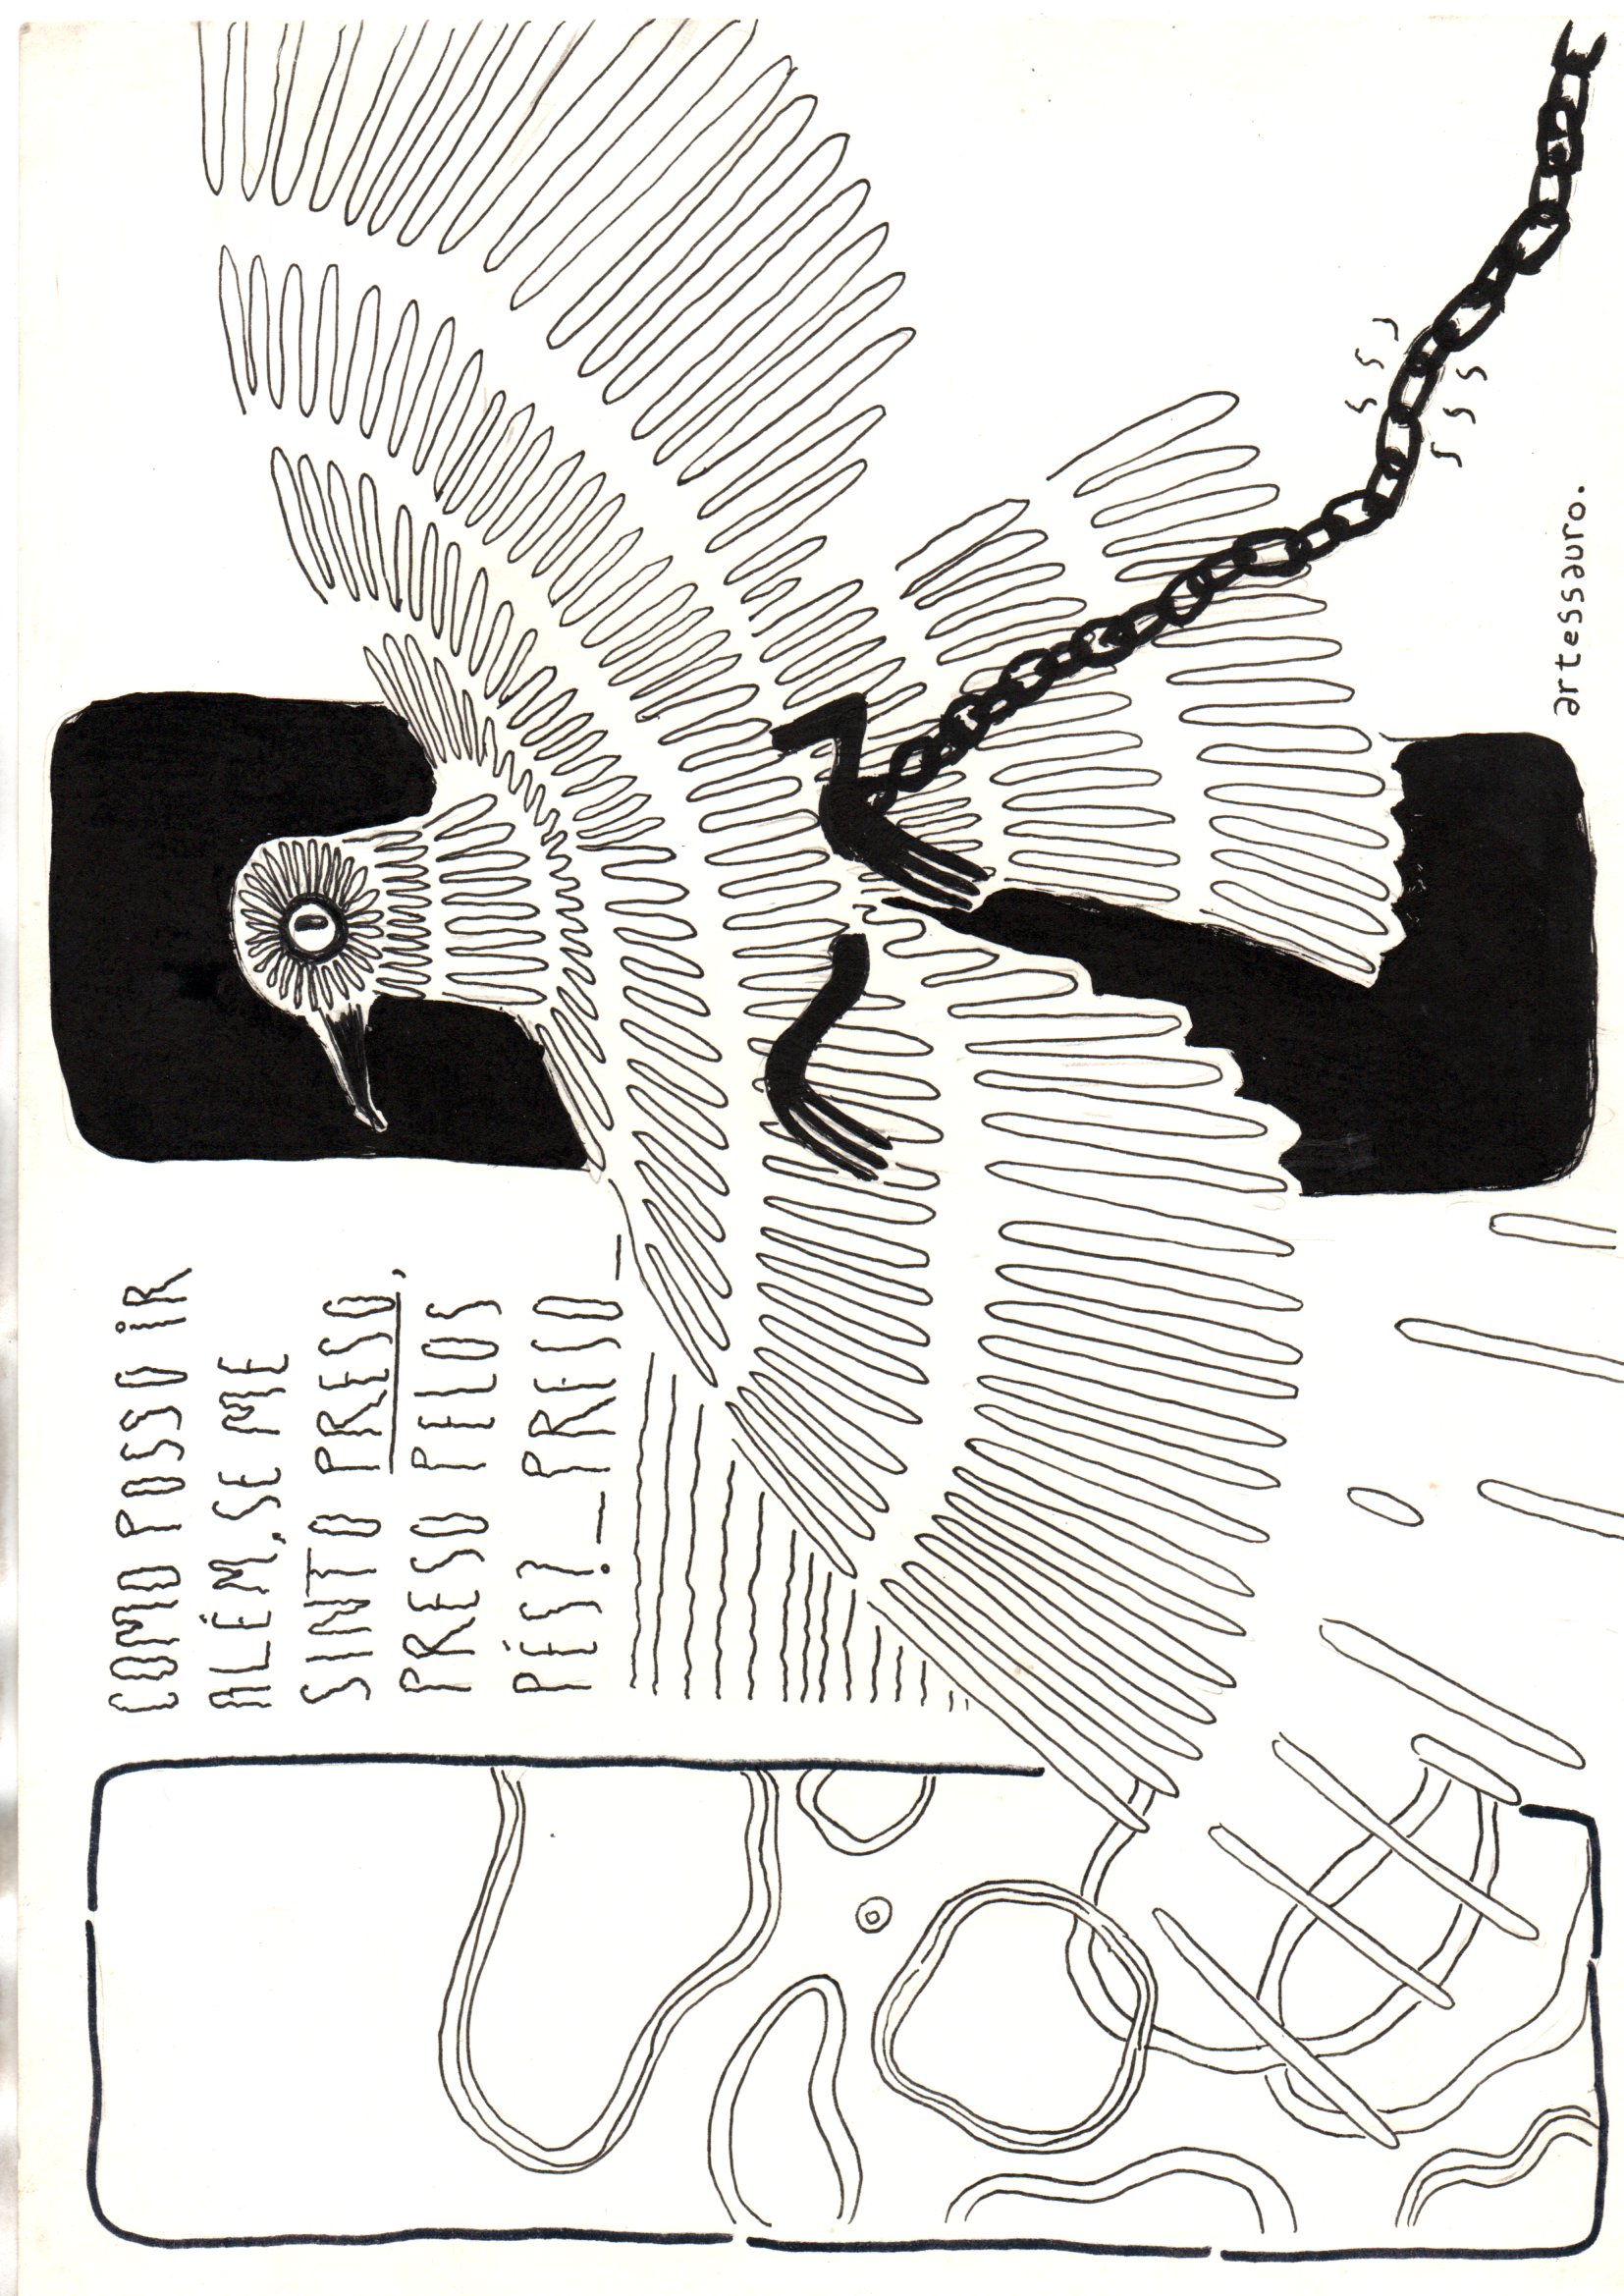 COMO POSSO IR
ALÉM, SE ME
SINTO PRESO,
PRESO PELOS
PÉS?_PRESO_
sss
sss
artessauro.